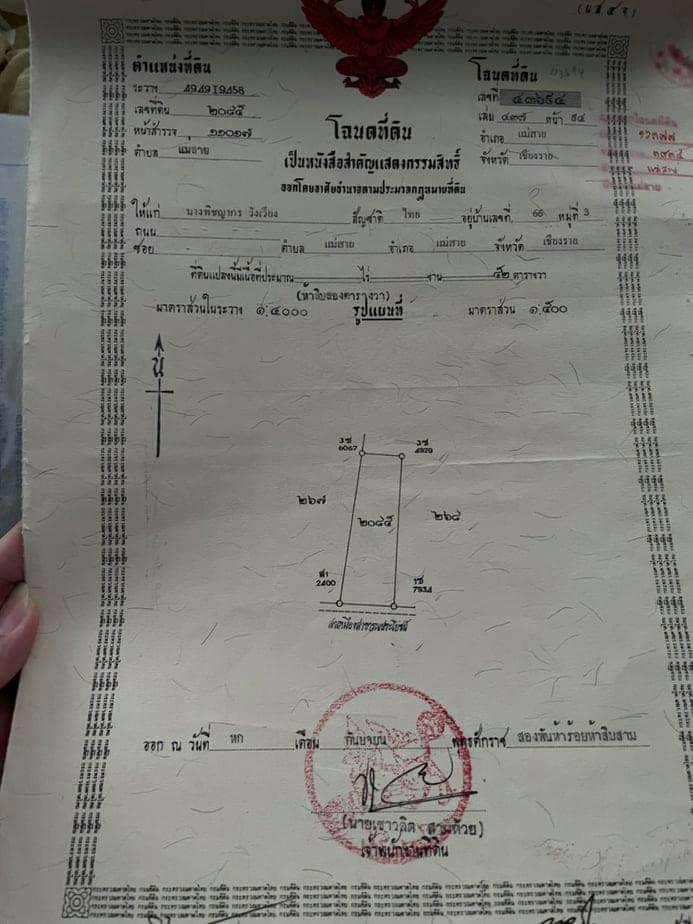 ตำแหน่งที่ดิน
ระวาง 4949 I 9458
เลขที่ดิน ๒๐๔๕
หน้าสำรวจ ๑๑๐๑๗
ตำบล แม่สาย
โฉนดที่ดิน
เลขที่ ๔๓๖๙๔
เล่ม ๔๓๗ หน้า ๙๔
อำเภอ แม่สาย
จังหวัด เชียงราย
โฉนดที่ดิน
เป็นหนังสือสำคัญแสดงกรรมสิทธิ์
ออกโดยอาศัยอำนาจตามประมวลกฎหมายที่ดิน
ให้แก่ นางพิชญากร วังเวียง สัญชาติ ไทย อยู่บ้านเลขที่ 66 หมู่ที่ 3
ถนน
ซอย - ตำบล แม่สาย อำเภอ แม่สาย จังหวัด เชียงราย
ที่ดินแปลงนี้มีเนื้อที่ประมาณ ไร่ งาน ๕๒ ตารางวา
(ห้าสิบสองตารางวา)
มาตราส่วนในระวาง ๑:๔๐๐๐ รูปแผนที่ มาตราส่วน ๑:๕๐๐
น
3ช 6067
3ช 4929
๒๖๗
๒๐๔๕
๒๖๔
2400
1ช 7934
ออก ณ วันที่ หก เดือน กันยายน พุทธศักราช สองพันห้าร้อยห้าสิบสาม
(นายเชาวลิต
เจ้าพนักงานที่ดิน